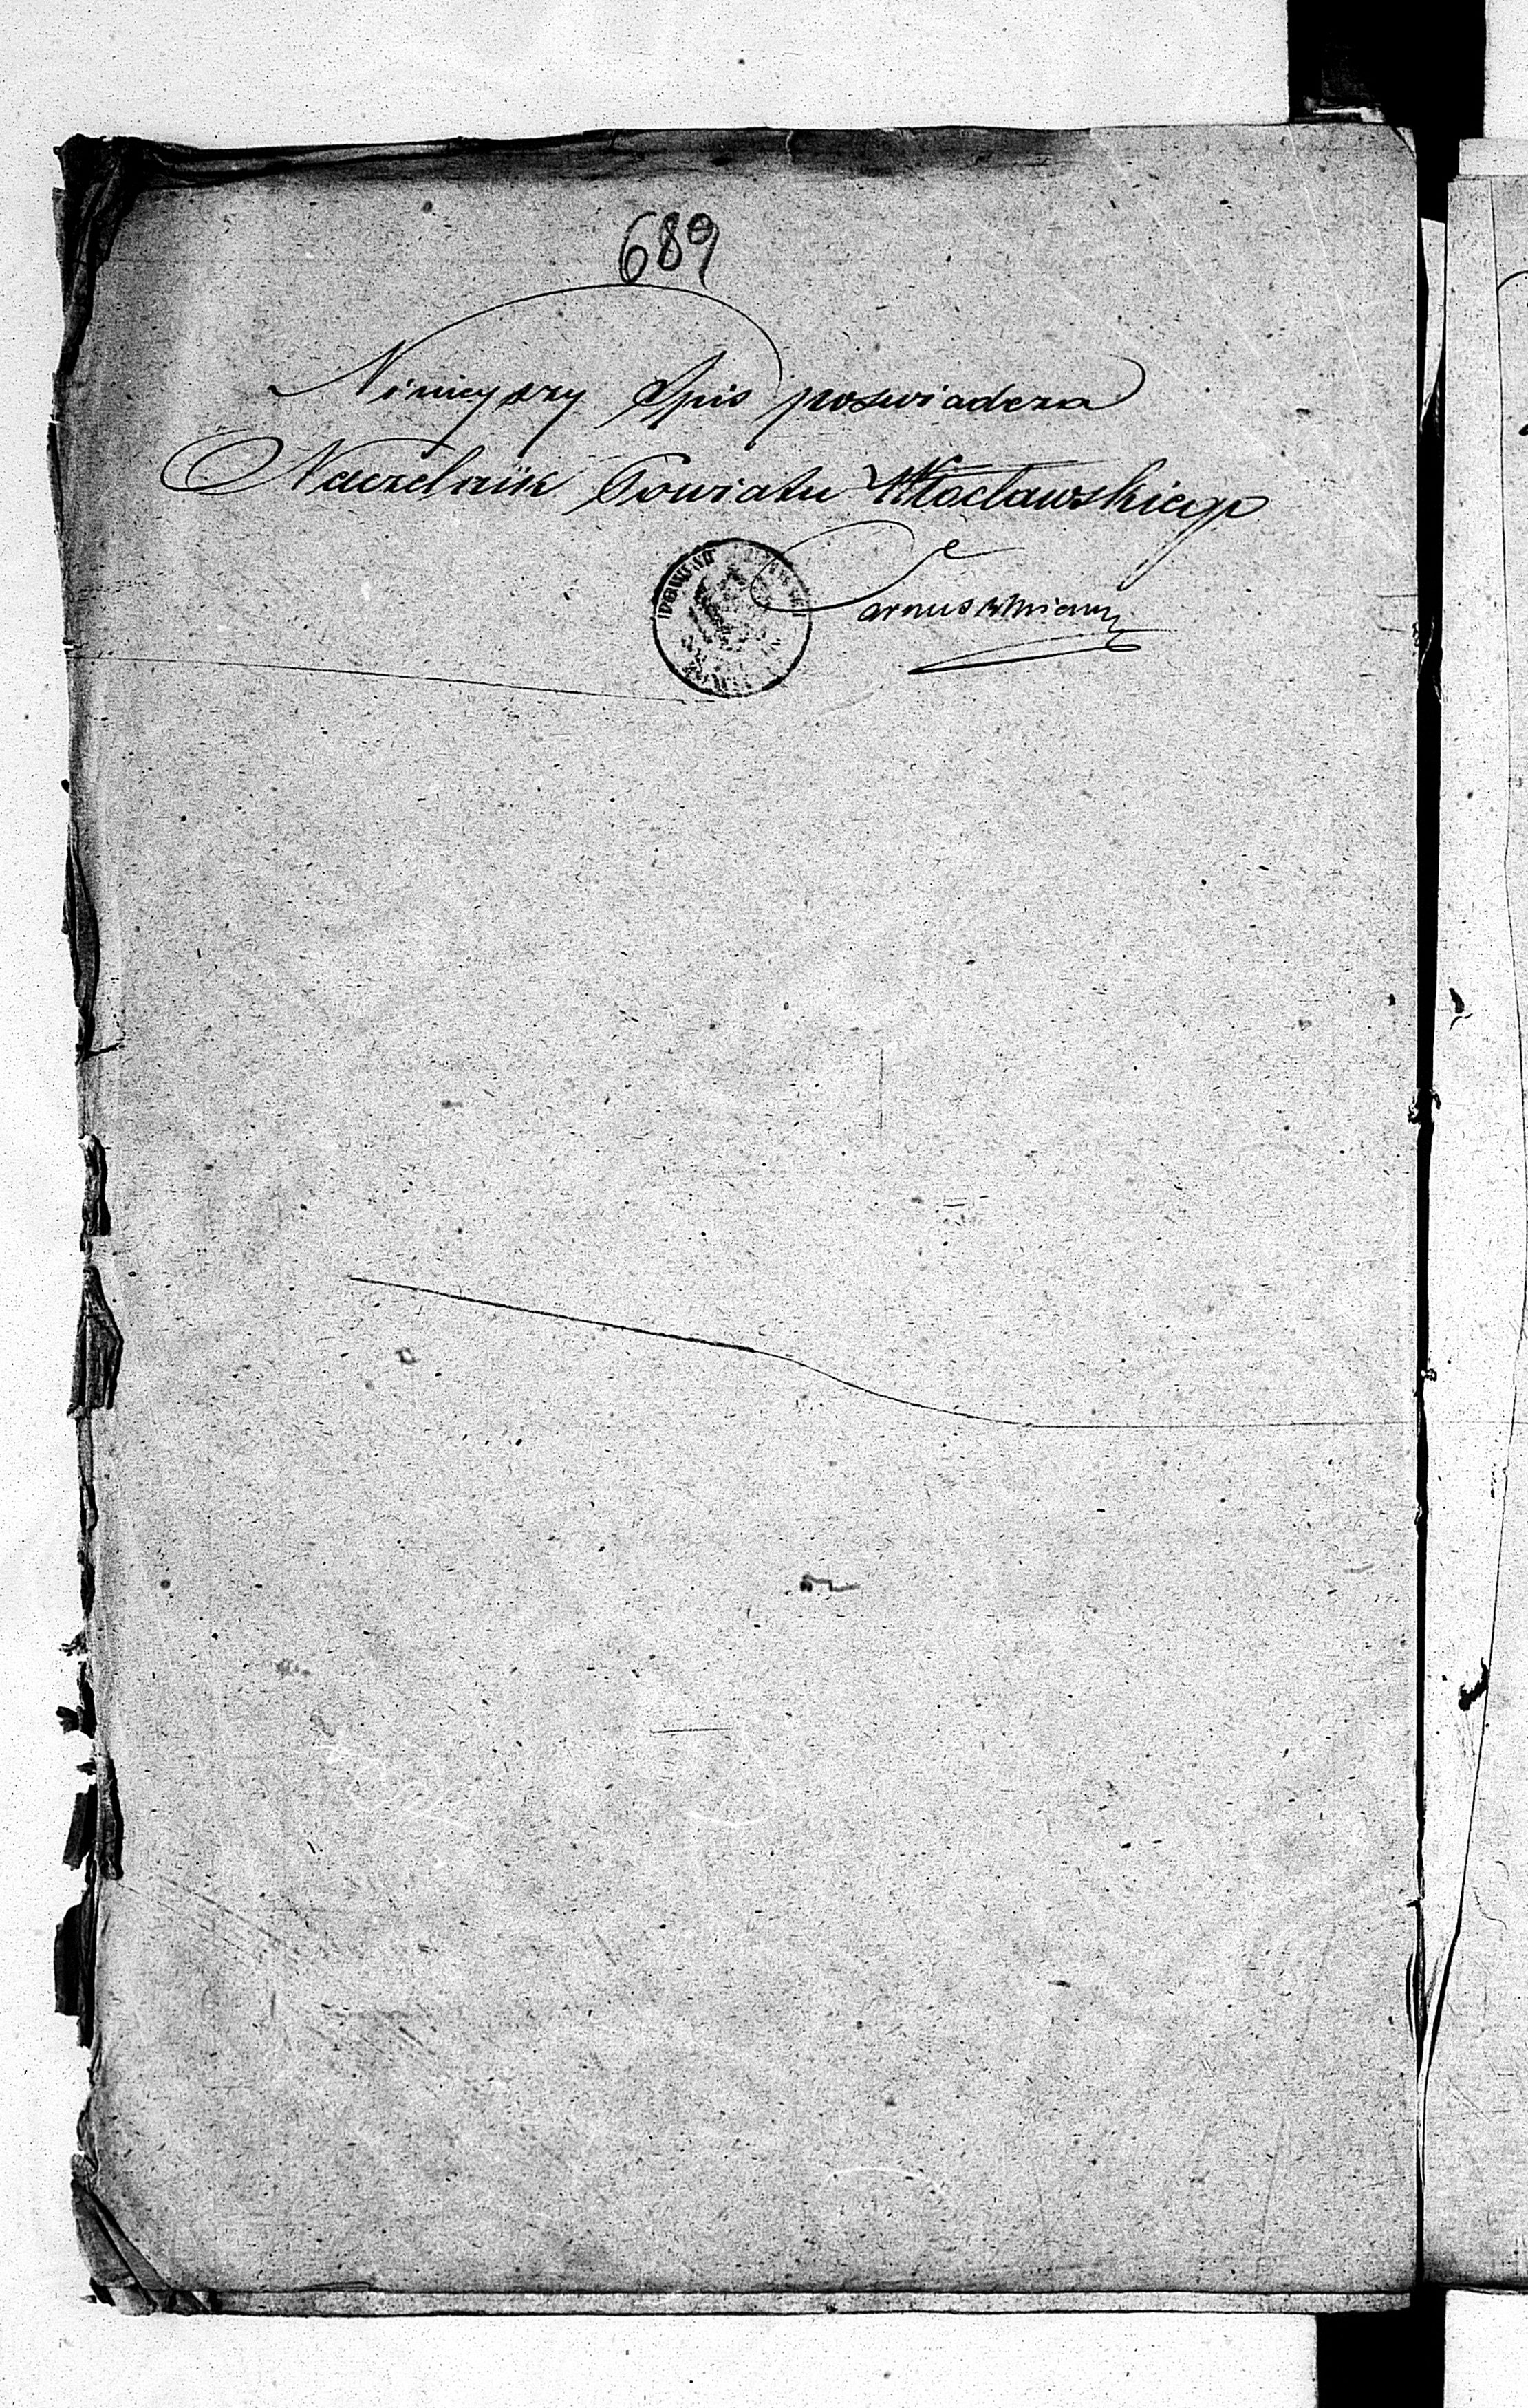 689
Niniejszy Spis poświadcza
Naczelnik Powiatu Włocławskiego